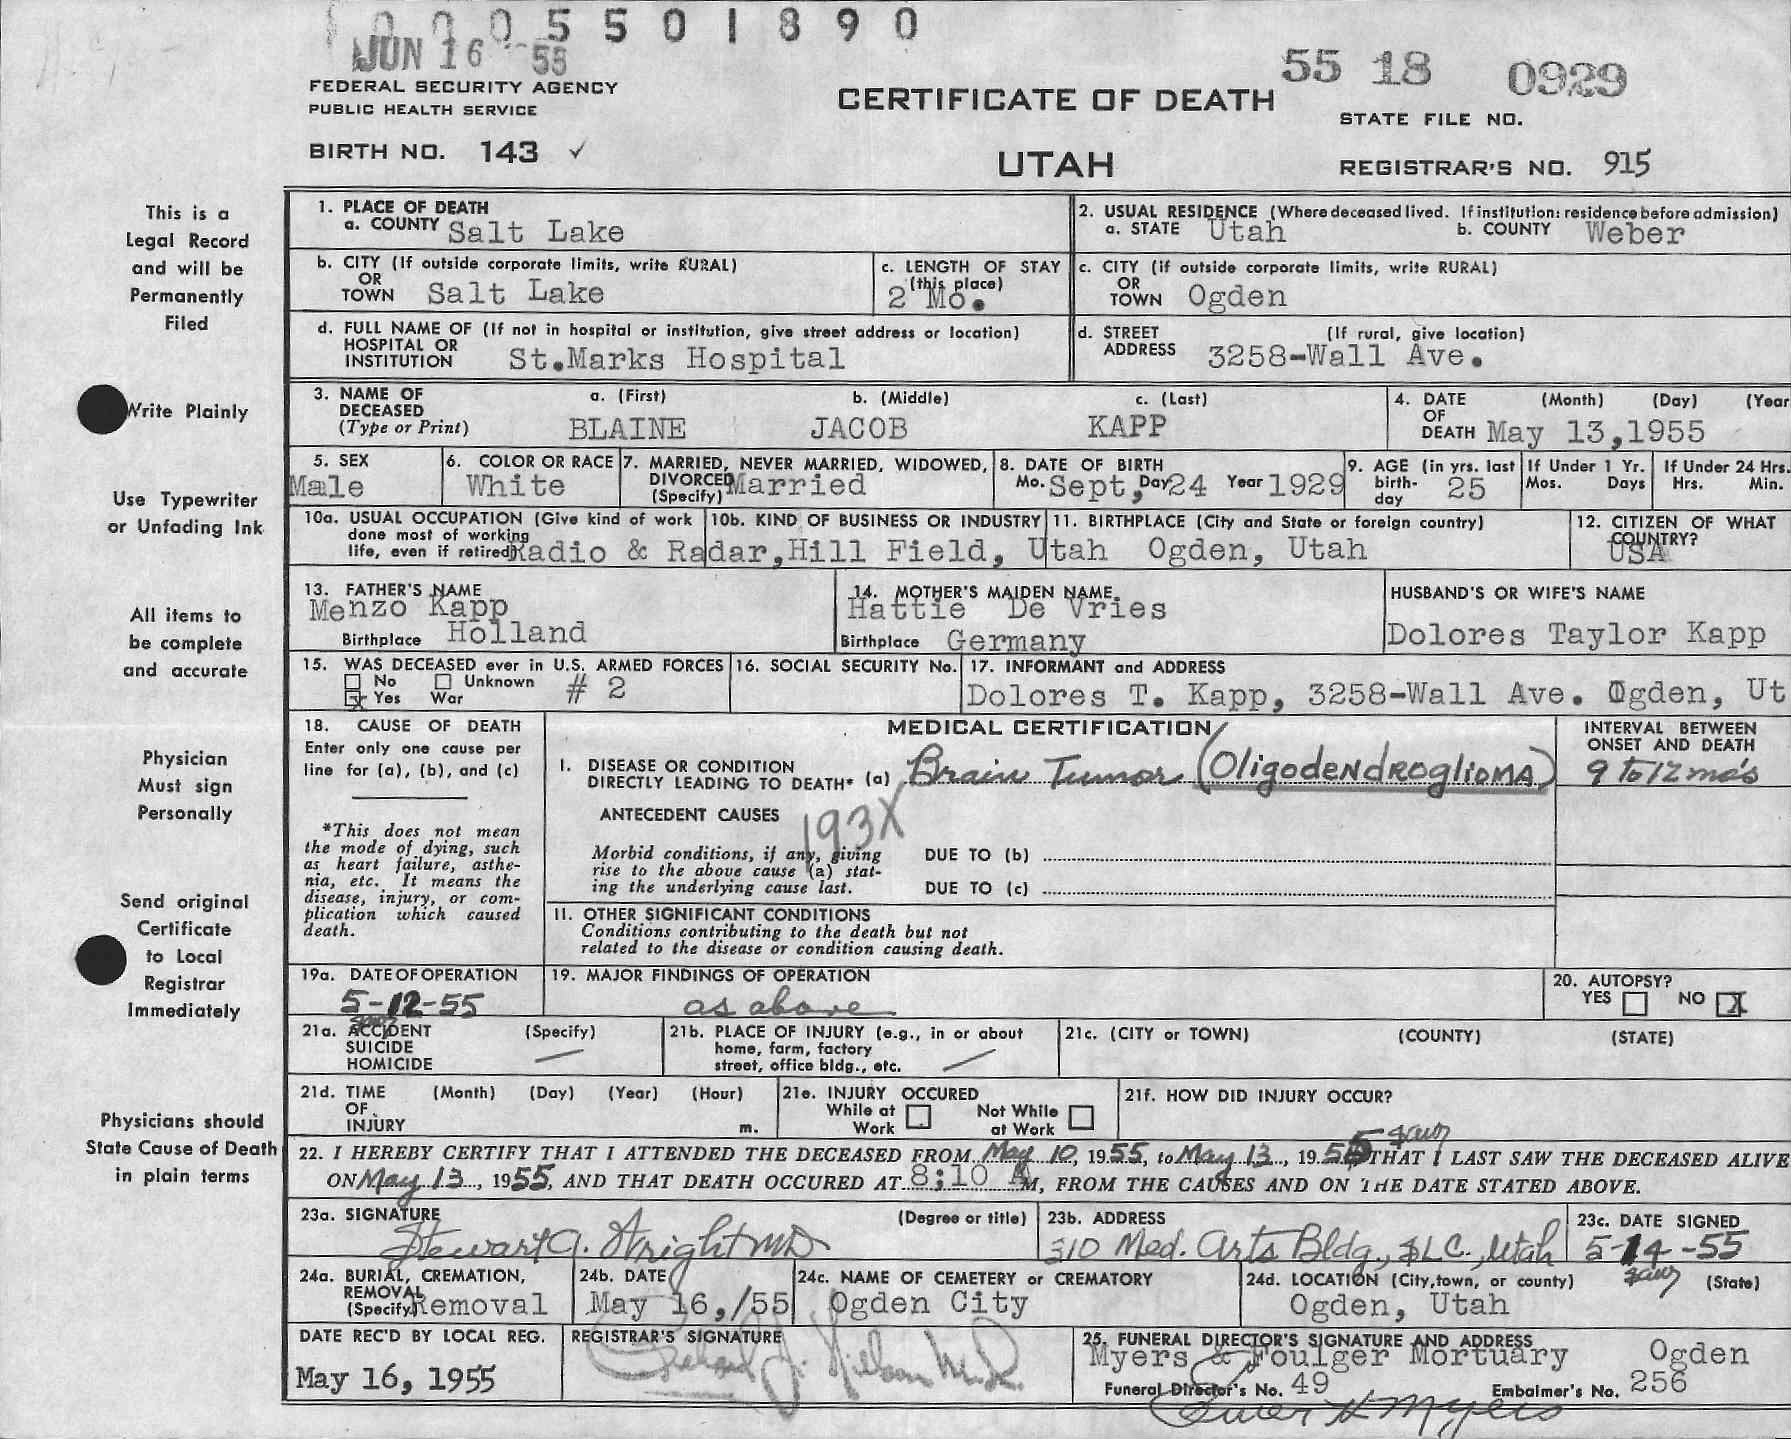 0005501890
JUN 16 55
55 18 0929
FEDERAL SECURITY AGENCY
PUBLIC HEALTH SERVICE
CERTIFICATE OF DEATH
STATE FILE NO.
BIRTH NO. 143 ✓
UTAH
REGISTRAR'S NO. 915
This is a
Legal Record
and will be
Permanently
Filed
Write Plainly
Use Typewriter
or Unfading Ink
All items to
be complete
and accurate
Physician
Must sign
Personally
Send original
Certificate
to Local
Registrar
Immediately
Physicians should
State Cause of Death
in plain terms
1. PLACE OF DEATH
a. COUNTY Salt Lake
2. USUAL RESIDENCE (Where deceased lived. If institution: residence before admission)
a. STATE Utah b. COUNTY Weber
b. CITY (If outside corporate limits, write RURAL)
OR
TOWN Salt Lake
c. LENGTH OF STAY
(this place)
2 Mo.
c. CITY (if outside corporate limits, write RURAL)
OR
TOWN Ogden
d. FULL NAME OF (If not in hospital or institution, give street address or location)
HOSPITAL OR
INSTITUTION St.Marks Hospital
d. STREET (If rural, give location)
ADDRESS 3258-Wall Ave.
3. NAME OF a. (First) b. (Middle) c. (Last)
DECEASED
(Type or Print) BLAINE JACOB KAPP
4. DATE (Month) (Day) (Year
OF
DEATH May 13,1955
5. SEX
Male
6. COLOR OR RACE
White
7. MARRIED, NEVER MARRIED, WIDOWED,
DIVORCED
(Specify) Married
8. DATE OF BIRTH
Mo. Sept, Day 24 Year 1929
9. AGE (in yrs. last
birth-
day 25
If Under 1 Yr.
Mos. Days
If Under 24 Hrs.
Hrs. Min.
10a. USUAL OCCUPATION (Give kind of work
done most of working
life, even if retired)
10b. KIND OF BUSINESS OR INDUSTRY
Radio & Radar,Hill Field, Utah
11. BIRTHPLACE (City and State or foreign country)
Ogden, Utah
12. CITIZEN OF WHAT
COUNTRY?
USA
13. FATHER'S NAME
Menzo Kapp
Birthplace Holland
14. MOTHER'S MAIDEN NAME
Hattie De Vries
Birthplace Germany
HUSBAND'S OR WIFE'S NAME
Dolores Taylor Kapp
15. WAS DECEASED ever in U.S. ARMED FORCES
No Unknown
x Yes War # 2
16. SOCIAL SECURITY No.
17. INFORMANT and ADDRESS
Dolores T. Kapp, 3258-Wall Ave. Ogden, Ut
18. CAUSE OF DEATH
Enter only one cause per
line for (a), (b), and (c)
*This does not mean
the mode of dying, such
as heart failure, asthe-
nia, etc. It means the
disease, injury, or com-
plication which caused
death.
MEDICAL CERTIFICATION
I. DISEASE OR CONDITION
DIRECTLY LEADING TO DEATH* (a) Brain Tumor (Oligodendroglioma)
INTERVAL BETWEEN
ONSET AND DEATH
9 to 12 mo's
ANTECEDENT CAUSES
193X
Morbid conditions, if any, giving
rise to the above cause (a) stat-
ing the underlying cause last.
DUE TO (b)
DUE TO (c)
II. OTHER SIGNIFICANT CONDITIONS
Conditions contributing to the death but not
related to the disease or condition causing death.
19a. DATE OF OPERATION
5-12-55
19. MAJOR FINDINGS OF OPERATION
as above
20. AUTOPSY?
YES NO X
21a. ACCIDENT (Specify)
SUICIDE
HOMICIDE
21b. PLACE OF INJURY (e.g., in or about
home, farm, factory
street, office bldg., etc.
21c. (CITY or TOWN) (COUNTY) (STATE)
21d. TIME (Month) (Day) (Year) (Hour)
OF
INJURY m.
21e. INJURY OCCURED
While at Not While
Work at Work
21f. HOW DID INJURY OCCUR?
22. I HEREBY CERTIFY THAT I ATTENDED THE DECEASED FROM May 10, 1955, to May 13, 1955 THAT I LAST SAW THE DECEASED ALIVE
ON May 13, 1955, AND THAT DEATH OCCURED AT 8;10 AM, FROM THE CAUSES AND ON THE DATE STATED ABOVE.
23a. SIGNATURE (Degree or title)
Stewart A. Wright MD
23b. ADDRESS
310 Med. Arts Bldg., SLC., Utah
23c. DATE SIGNED
5-14-55
24a. BURIAL, CREMATION,
REMOVAL
(Specify) Removal
24b. DATE
May 16,/55
24c. NAME OF CEMETERY or CREMATORY
Ogden City
24d. LOCATION (City,town, or county) (State)
Ogden, Utah
DATE REC'D BY LOCAL REG.
May 16, 1955
REGISTRAR'S SIGNATURE
25. FUNERAL DIRECTOR'S SIGNATURE AND ADDRESS
Myers & Foulger Mortuary Ogden
Funeral Director's No. 49 Embalmer's No. 256
Myers